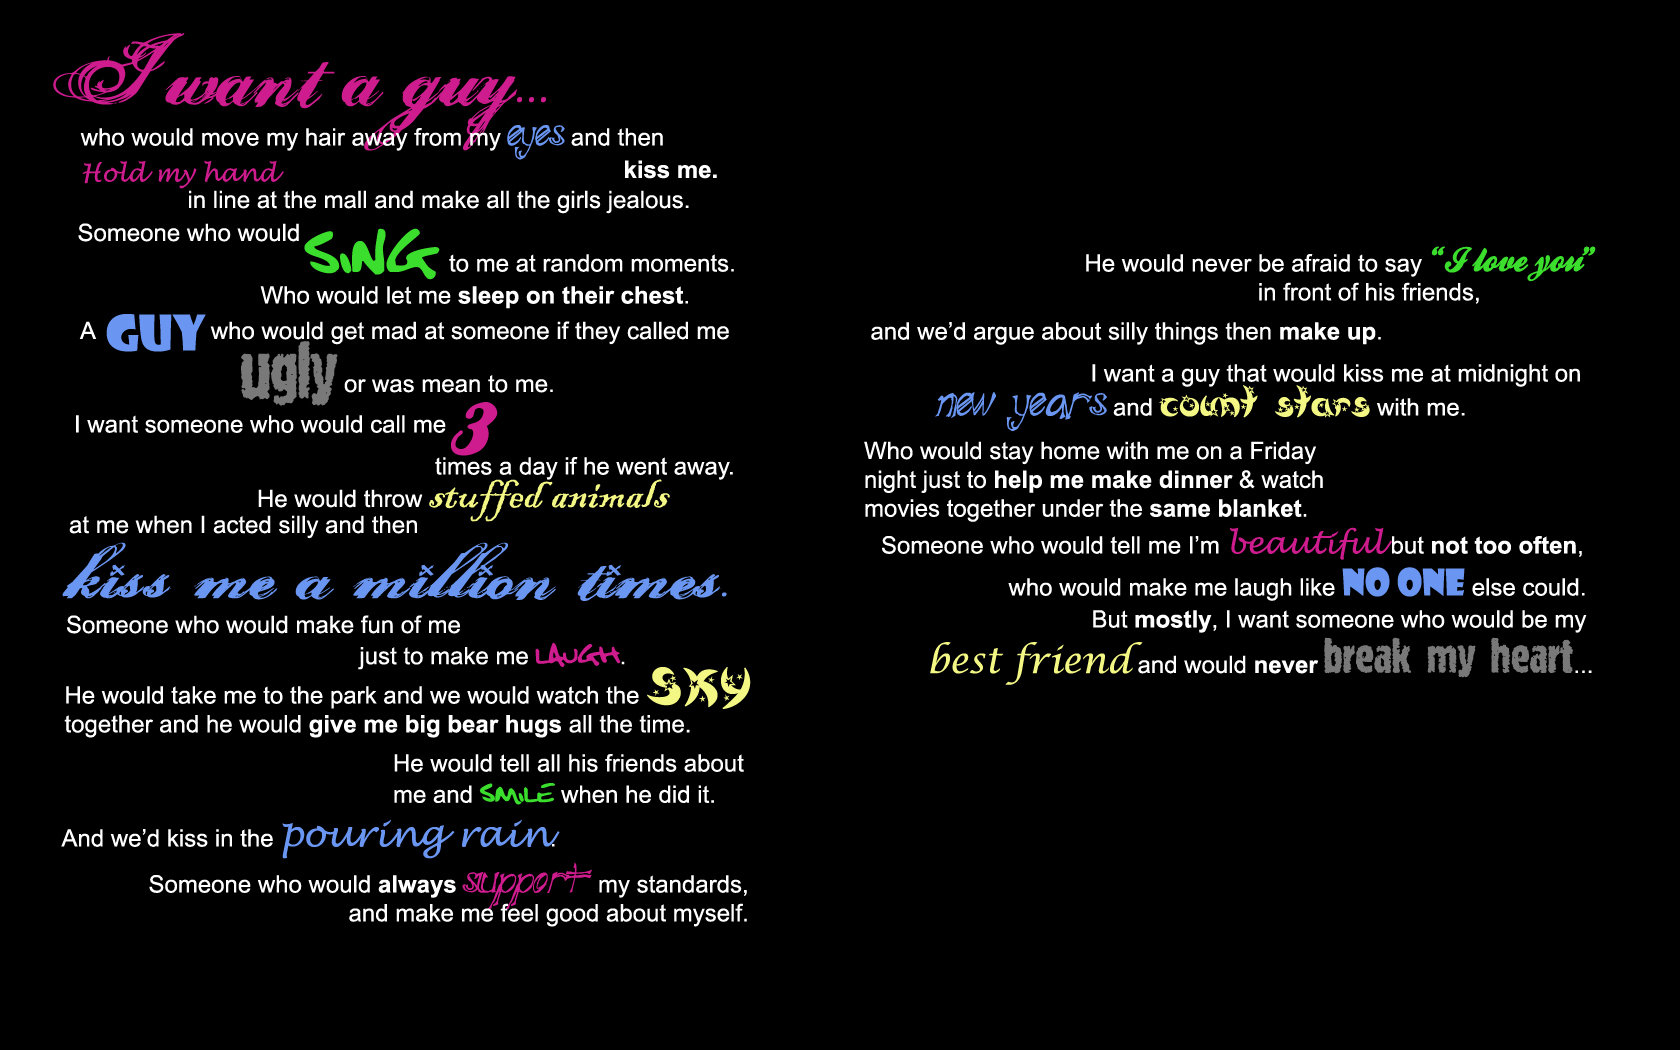 I want a guy...
who would move my hair away from my eyes and then
kiss me.
Hold my hand
in line at the mall and make all the girls jealous.
Someone who would
SING to me at random moments.
Who would let me sleep on their chest.
A GUY who would get mad at someone if they called me
ugly or was mean to me.
I want someone who would call me 3
times a day if he went away.
He would throw stuffed animals
at me when I acted silly and then
kiss me a million times.
Someone who would make fun of me
just to make me LAUGH.
He would take me to the park and we would watch the SKY
together and he would give me big bear hugs all the time.
He would tell all his friends about
me and SMILE when he did it.
And we’d kiss in the pouring rain.
Someone who would always support my standards,
and make me feel good about myself.
He would never be afraid to say “I love you”
in front of his friends,
and we’d argue about silly things then make up.
I want a guy that would kiss me at midnight on
new years and count stars with me.
Who would stay home with me on a Friday
night just to help me make dinner & watch
movies together under the same blanket.
Someone who would tell me I’m beautiful but not too often,
who would make me laugh like NO ONE else could.
But mostly, I want someone who would be my
best friend and would never break my heart...